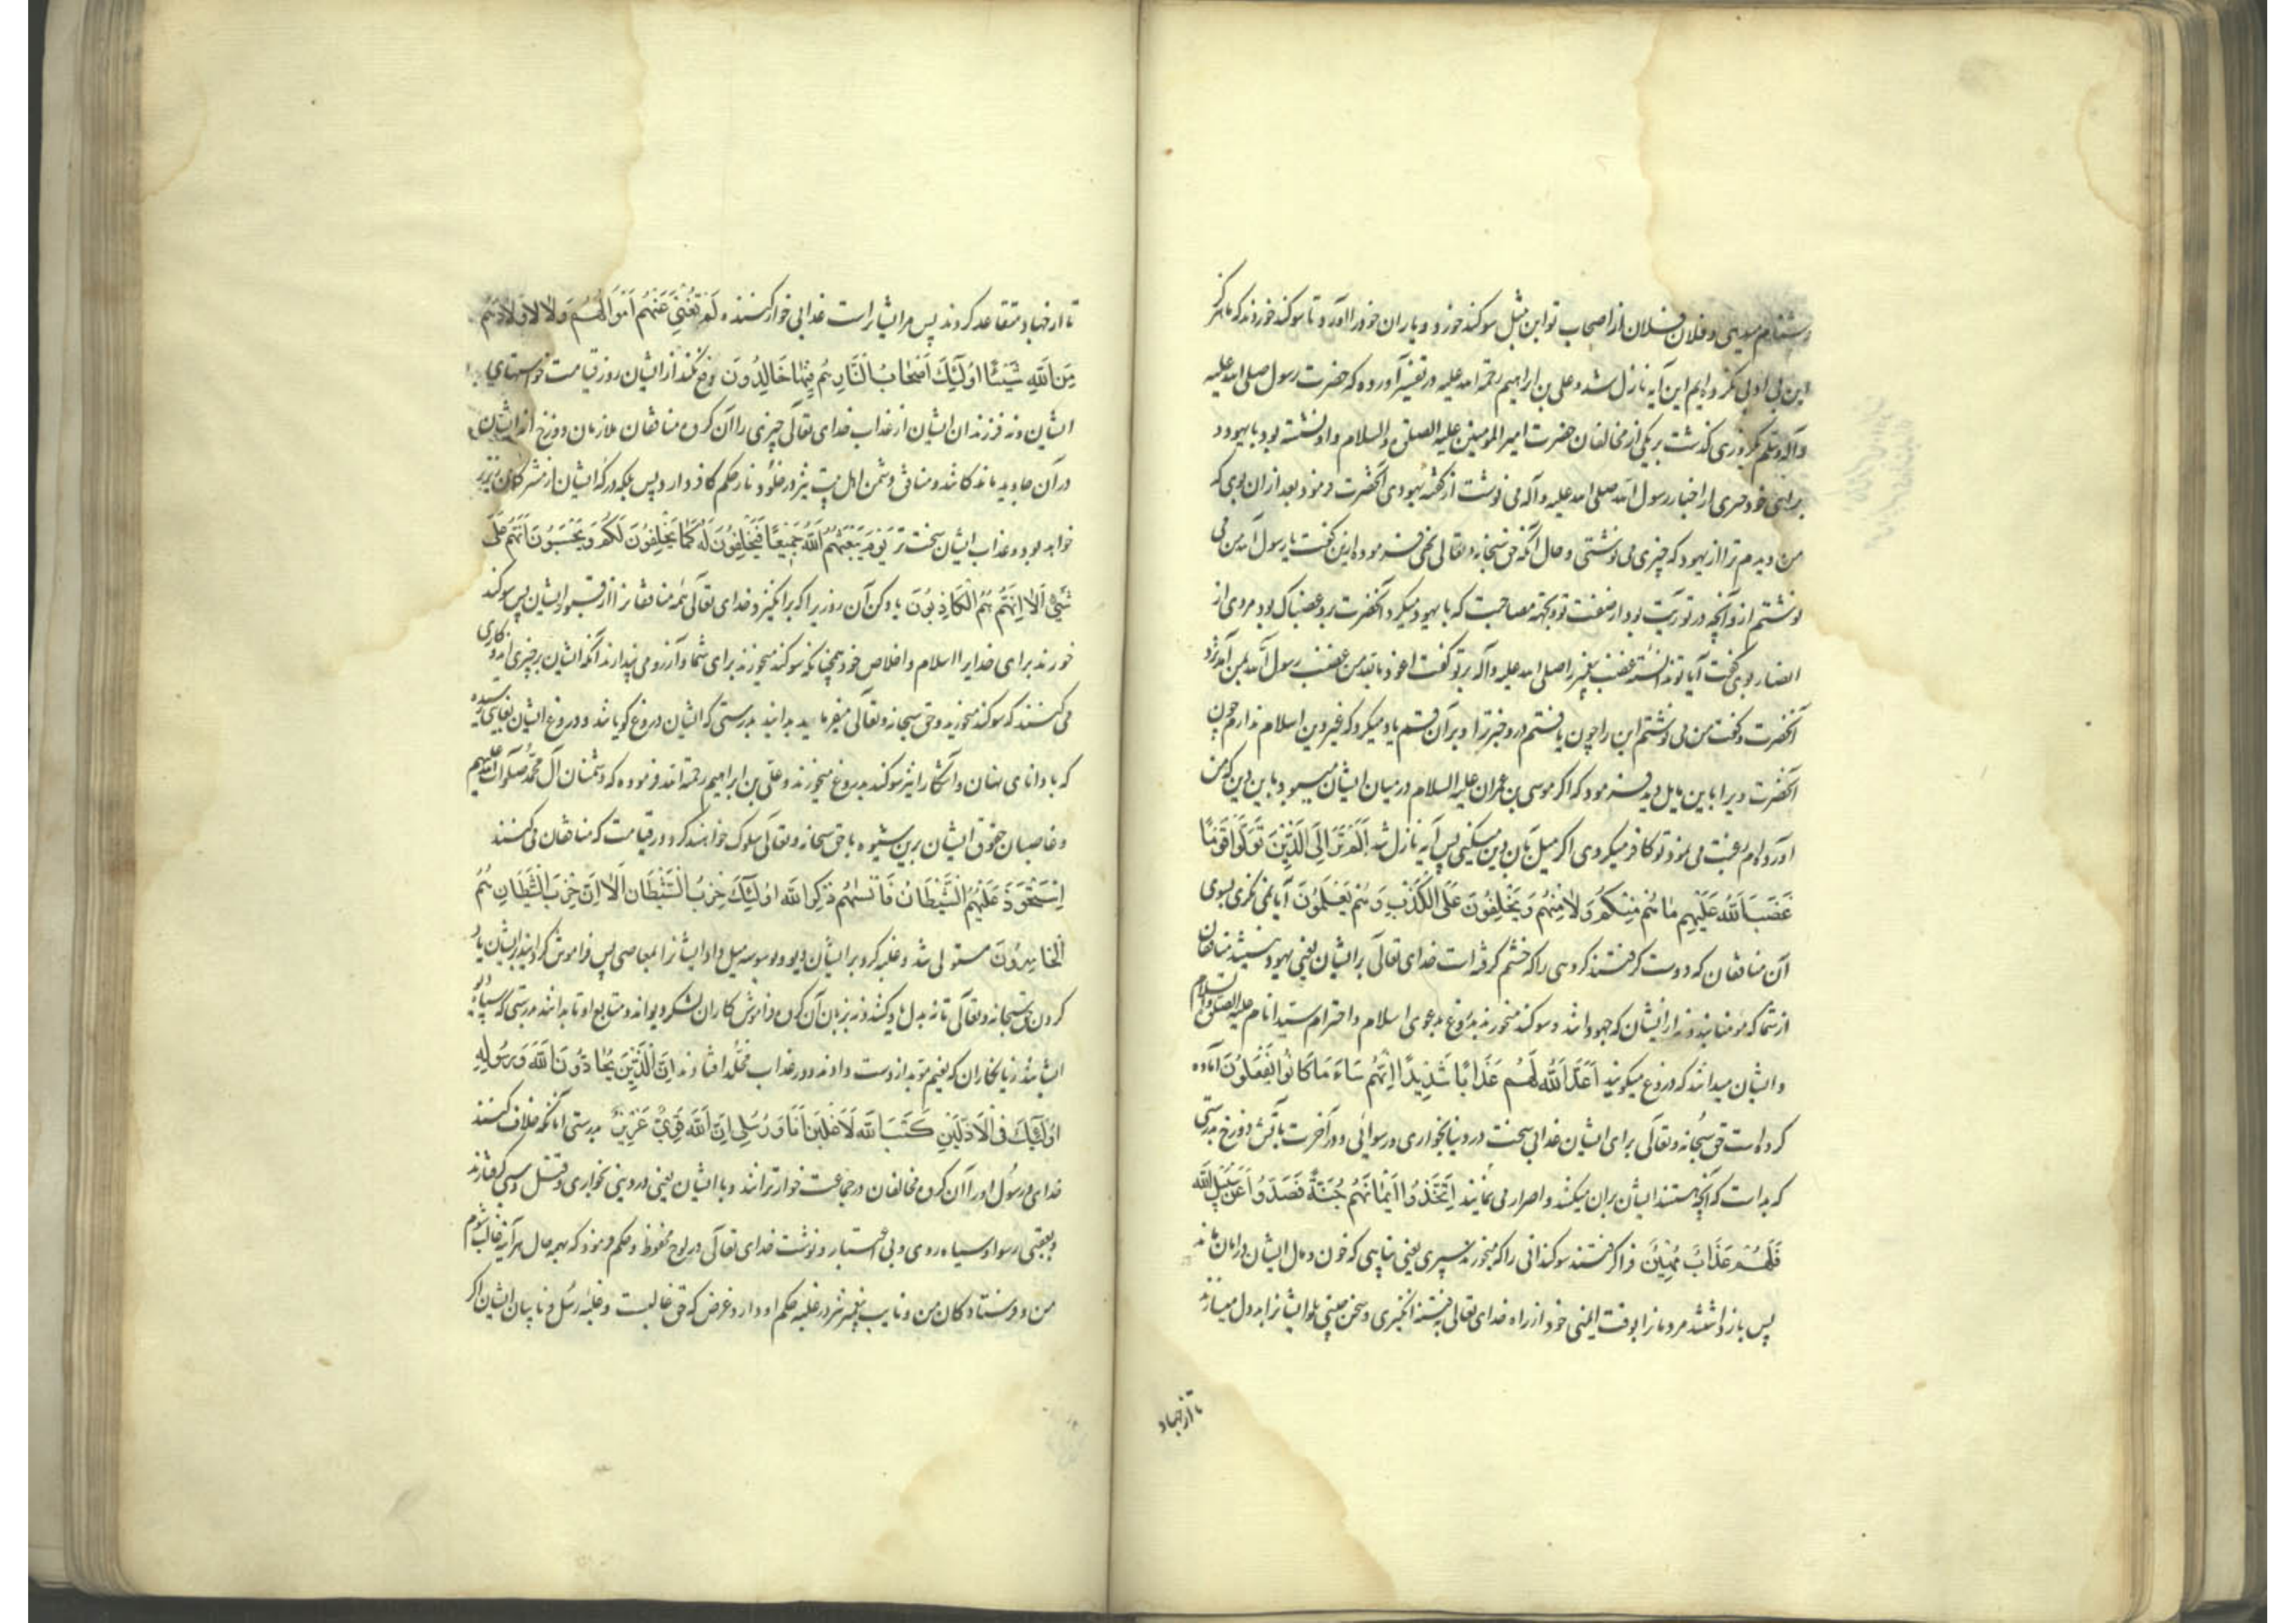 دشنام میدهی و فلان و فلان از اصحاب تو این مثل سوکند خورد و یاران خود را آورد تا سوکند خوردند که ما هرکز
این بی ادبی نکرده‌ایم این آیه نازل شد و علی بن ابراهیم رحمة الله علیه در تفسیر آورده که حضرت رسول صلی الله علیه
وآله وسلم روزی کذشت بر یکی از مخالفان حضرت امیر المومنین علیه الصلوة والسلام و او نشسته بود با یهود و
برای خود از اخبار رسول الله صلی الله علیه وآله می نوشت از کفته یهودی آنحضرت فرمود بعد از آن بوی که
من دیدم ترا از یهود که چیزی می نوشتی و حال آنکه حق سبحانه و تعالی نهی فرموده ازین کفت یا رسول الله من می
نوشتم از و آنچه در توریت بود از صفت تو و بجهة مصاحبت که با یهود میکرد آنحضرت برو غضبناک بود مردی از
انصار بوی کفت آیا تو ندانستهٔ غضب پیغمبر را صلی الله علیه وآله بر تو کفت اعوذ بالله من غضب رسول الله پس آمد نزد
آنحضرت و کفت من می نوشتم این را چون یافتم درو خبر ترا و بر آن قسم یاد میکرد که غیر دین اسلام ندارم چون
آنحضرت ویرا باین مایل دید فرمود که اکر موسی بن عمران علیه السلام در میان ایشان میبود باین دین که من
آورده‌ام رغبت می نمود تو کافر میکردی اکر میل بآن دین میکنی پس آیه نازل شد اَلَمْ تَرَ اِلَی الَّذِینَ تَوَلَّوْا قَوْمًا
غَضِبَ اللهُ عَلَیْهِم مَا هُم مِنْکُمْ وَلَا مِنْهُمْ وَیَحْلِفُونَ عَلَی الْکَذِبِ وَهُمْ یَعْلَمُونَ آیا نمی نکری بسوی
آن منافقان که دوست کرفتند کروهی را که خشم کرفته است خدای تعالی بر ایشان یعنی یهود نیستند منافقان
از شما که مؤمنانید و نه از ایشان که جهودانند و سوکند میخورند بدروغ بدعوی اسلام و احترام سید انام علیه الصلوة والسلام
و ایشان میدانند که دروغ میکویند اَعَدَّ اللهُ لَهُمْ عَذَابًا شَدِیدًا اِنَّهُمْ سَاءَ مَا کَانُوا یَعْمَلُونَ آماده
کرده است حق سبحانه و تعالی برای ایشان عذابی سخت در دنیا بخواری و رسوائی و در آخرت بآتش دوزخ بدرستی
که بد است که آنچه هستند ایشان بران میکنند و اصرار می نمایند اِتَّخَذُوا اَیْمَانَهُمْ جُنَّةً فَصَدُّوا عَنْ سَبِیلِ الله
فَلَهُمْ عَذَابٌ مُهِینٌ فرا کرفتند سوکندانی را که میخورند سپری یعنی پناهی که خون و مال ایشان در امان ماند
پس باز داشتند مردمانرا بوقت ایمنی خود از راه خدای تعالی بفتنه انکیزی و سخن چینی یا ایشانرا بددل میسازند
تا از جهاد
تا از جهاد تقاعد کردند پس مر ایشانراست عذابی خوار کننده لَنْ تُغْنِیَ عَنْهُمْ اَمْوَالُهُمْ وَلَا اَوْلَادُهُمْ
مِنَ اللهِ شَیْئًا اُولٰئِکَ اَصْحَابُ النَّارِ هُمْ فِیهَا خَالِدُونَ دفع نکند از ایشان روز قیامت خواستهای
ایشان و نه فرزندان ایشان از عذاب خدای تعالی چیزی را آن کروه منافقان ملازمان دوزخ اند ایشان
در آن جاوید ماندکانند و منافق و دشمن اهل بیت نیز در خلود نار حکم کافر دارد پس بلکه درکه ایشان از مشرکان زیرتر
خواهد بود و عذاب ایشان سخت تر یَوْمَ یَبْعَثُهُمُ اللهُ جَمِیعًا فَیَحْلِفُونَ لَهُ کَمَا یَحْلِفُونَ لَکُمْ وَیَحْسَبُونَ اَنَّهُمْ عَلَی
شَیْءٍ اَلَا اِنَّهُمْ هُمُ الْکَاذِبُونَ یاد کن آن روز را که بر انکیزد خدای تعالی همهٔ منافقانرا از قبور ایشان پس سوکند
خورند برای خدای را اسلام و اخلاص خود همچنانکه سوکند میخورند برای شما و آرزو می پندارند آنکه ایشان بر چیزی اند و کاری
می کنند که سوکند میخورند و حق سبحانه و تعالی میفرماید بدانید بدرستی که ایشان دروغ کویانند و دروغ ایشان بغایتی رسیده
که با دانای نهان و آشکارا نیز سوکند بدروغ میخورند و علی بن ابراهیم رحمة الله فرموده که دشمنان آل محمد صلوات الله علیهم
و غاصبان حقوق ایشان برین شیوه با حق سبحانه و تعالی سلوک خواهند کرد در قیامت که منافقان می کنند
اِسْتَحْوَذَ عَلَیْهِمُ الشَّیْطَانُ فَاَنْسٰهُمْ ذِکْرَ اللهِ اُولٰئِکَ حِزْبُ الشَّیْطَانِ اَلَا اِنَّ حِزْبَ الشَّیْطَانِ هُمُ
الْخَاسِرُونَ مستولی شد و غلبه کرد بر ایشان دیو و بوسوسه میل داد ایشانرا بمعاصی پس فراموش کردانید بر ایشان یاد
کردن حق سبحانه و تعالی تا نه بدل یاد کنند و نه بزبان آن کروه فراموش کاران لشکر دیواند و متابع او تا بدانند بدرستی که سپاه دیو
ایشانند زیانکاران که نعیم مؤبد از دست دادند و در عذاب مخلد افتادند اِنَّ الَّذِینَ یُحَادُّونَ اللهَ وَرَسُولَهُ
اُولٰئِکَ فِی الْاَذَلِّینَ کَتَبَ اللهُ لَاَغْلِبَنَّ اَنَا وَرُسُلِی اِنَّ اللهَ قَوِیٌّ عَزِیزٌ بدرستی آنانکه خلاف کنند
خدای و رسول او را آن کروه مخالفان در جماعت خوارترانند و با ایشان یعنی در دنیی بخواری و قتل و سبی کرفتارند
و بعقبی رسوا و سیاه روی و بی اعتبار و نوشت خدای تعالی در لوح محفوظ و حکم فرمود که بهمه حال هر آینه غالب شوم
من و فرستادکان من و نایب پیغمبر نیز در غلبه حکم او دارد غرض که حق غالبست و غلبهٔ رسل و نایبان ایشان اکر